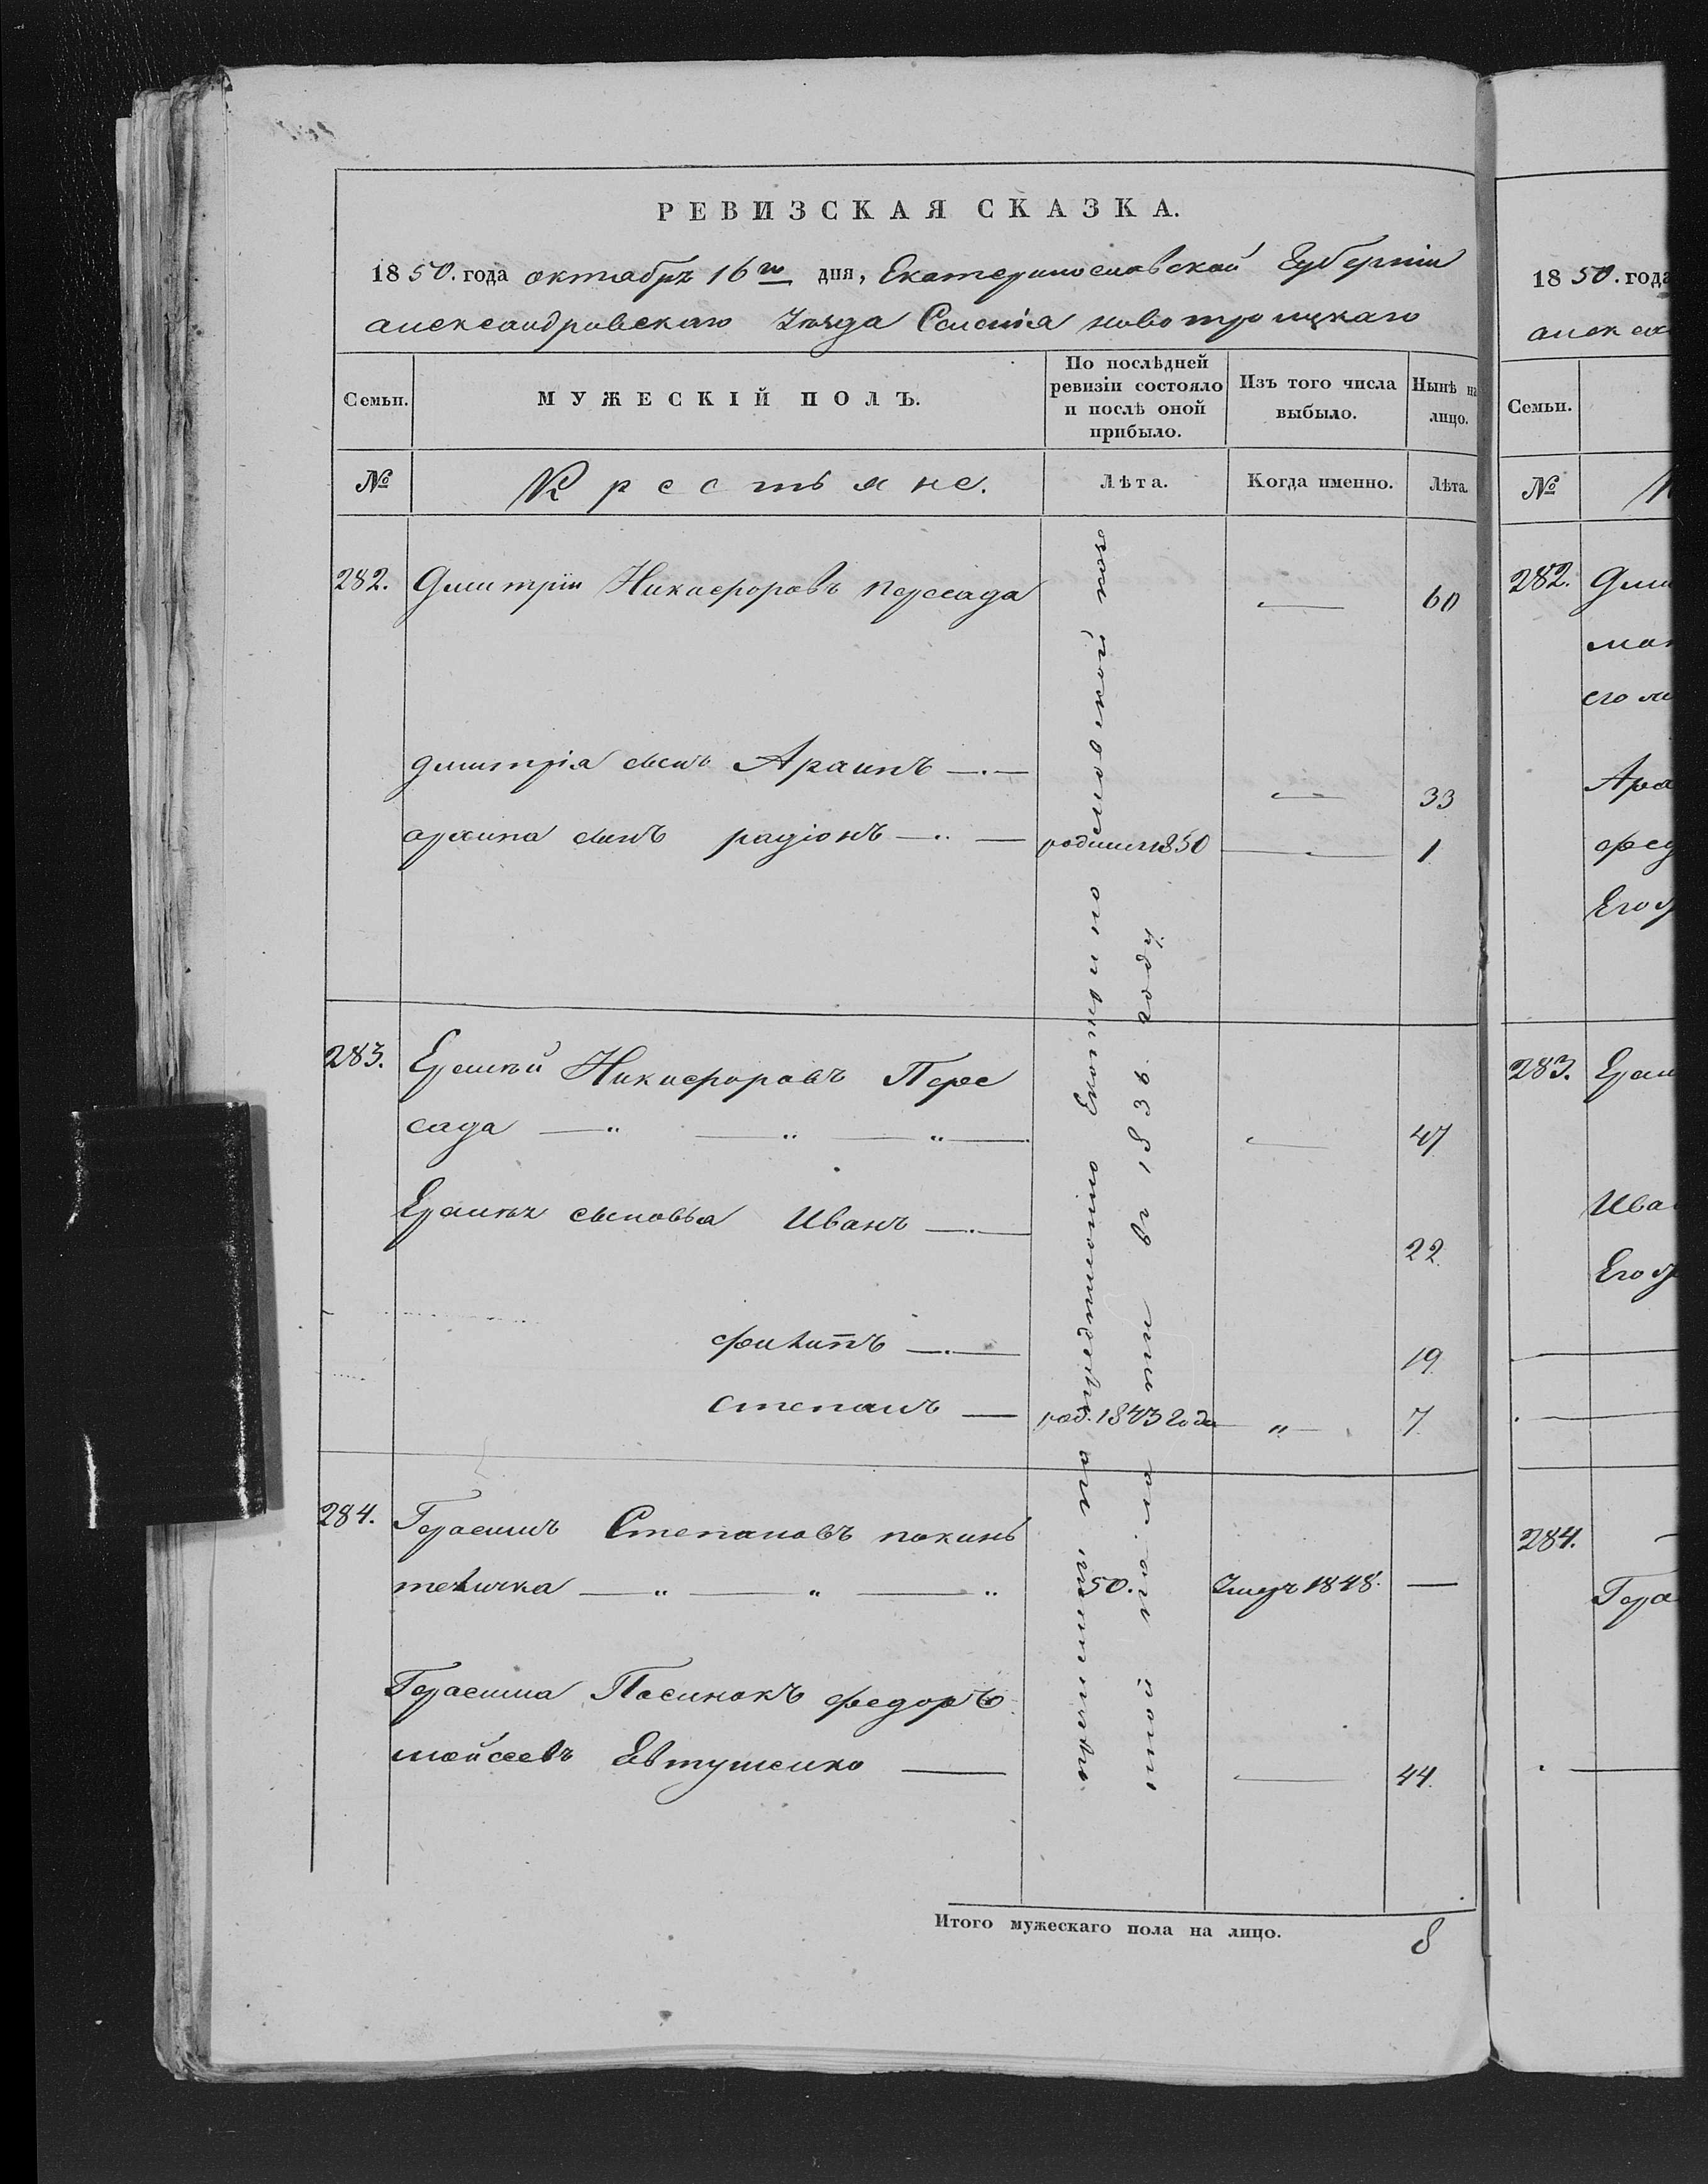 РЕВИЗСКАЯ СКАЗКА.
1850. года октября 16го дня, Екатеринославской Губерніи
александровскаго Уезда Селенія новотроицкаго
Семьи.
МУЖЕСКІЙ ПОЛЪ.
По послѣдней ревизіи состояло и послѣ оной прибыло.
Изъ того числа выбыло.
Нынѣ на лицо.
№
Крестьяне.
Лѣта.
Когда именно.
Лѣта
282. Дмитрій Никифоровъ пересада — 60
дмитрія сынъ Архипъ — — 33
архипа сынъ радіонъ — родился 1850 — 1
283. Еремѣй Никифоровъ Пере
сада — „ — „ — „ — — 47
Еремѣя сыновья Иванъ — 22
филипъ — 19
степанъ — род. 1843 года — „ — 7
284. Герасимъ Степановъ покинь
теличка — „ — „ — „ 50. Умеръ 1848. —
Герасима Пасинокъ федоръ
мойсеевъ Евтушенко — — 44.
причислен по предписанию Екатеринославской каз
ной палаты в 1836. году
Итого мужескаго пола на лицо. 8
1850. года
алек
Семьи.
№
282. Дми
его
Арх
фед
Его
283. Ерем
Ива
Его
284.
Гера